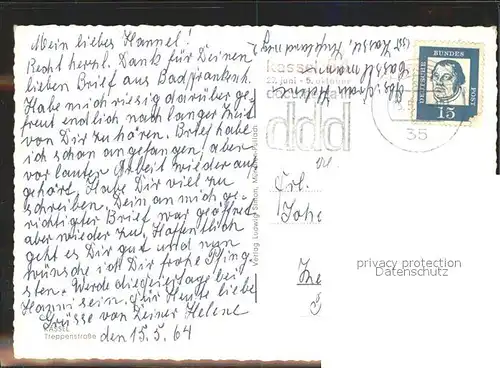 Mein liebes Hannel!
Recht herzl. Dank für Deinen
lieben Brief aus Badfrankenh.
Habe mich riesig darüber ge-
freut endlich nach langer Zeit
von Dir zu hören. Brief habe
ich schon angefangen, aber
vor lauter Arbeit wieder auf
gehört. Habe Dir viel zu
schreiben. Dein an mich ge-
richtigter Brief war geöffnet
aber wieder zu. Hoffentlich
geht es Dir gut und nun
wünsche ich Dir frohe Pfing
sten. Werde die Feiertage bei
Hanni sein. Für Heute liebe
Grüsse von Deiner Helene
den 15.5.64
KASSEL
Treppenstraße
Verlag Ludwig Simon, München-Pullach
kassel
27. juni - 5. oktober
documenta
ddd
35
DEUTSCHE
BUNDES
POST
15
Frl.
Johe
privacy protection
Datenschutz